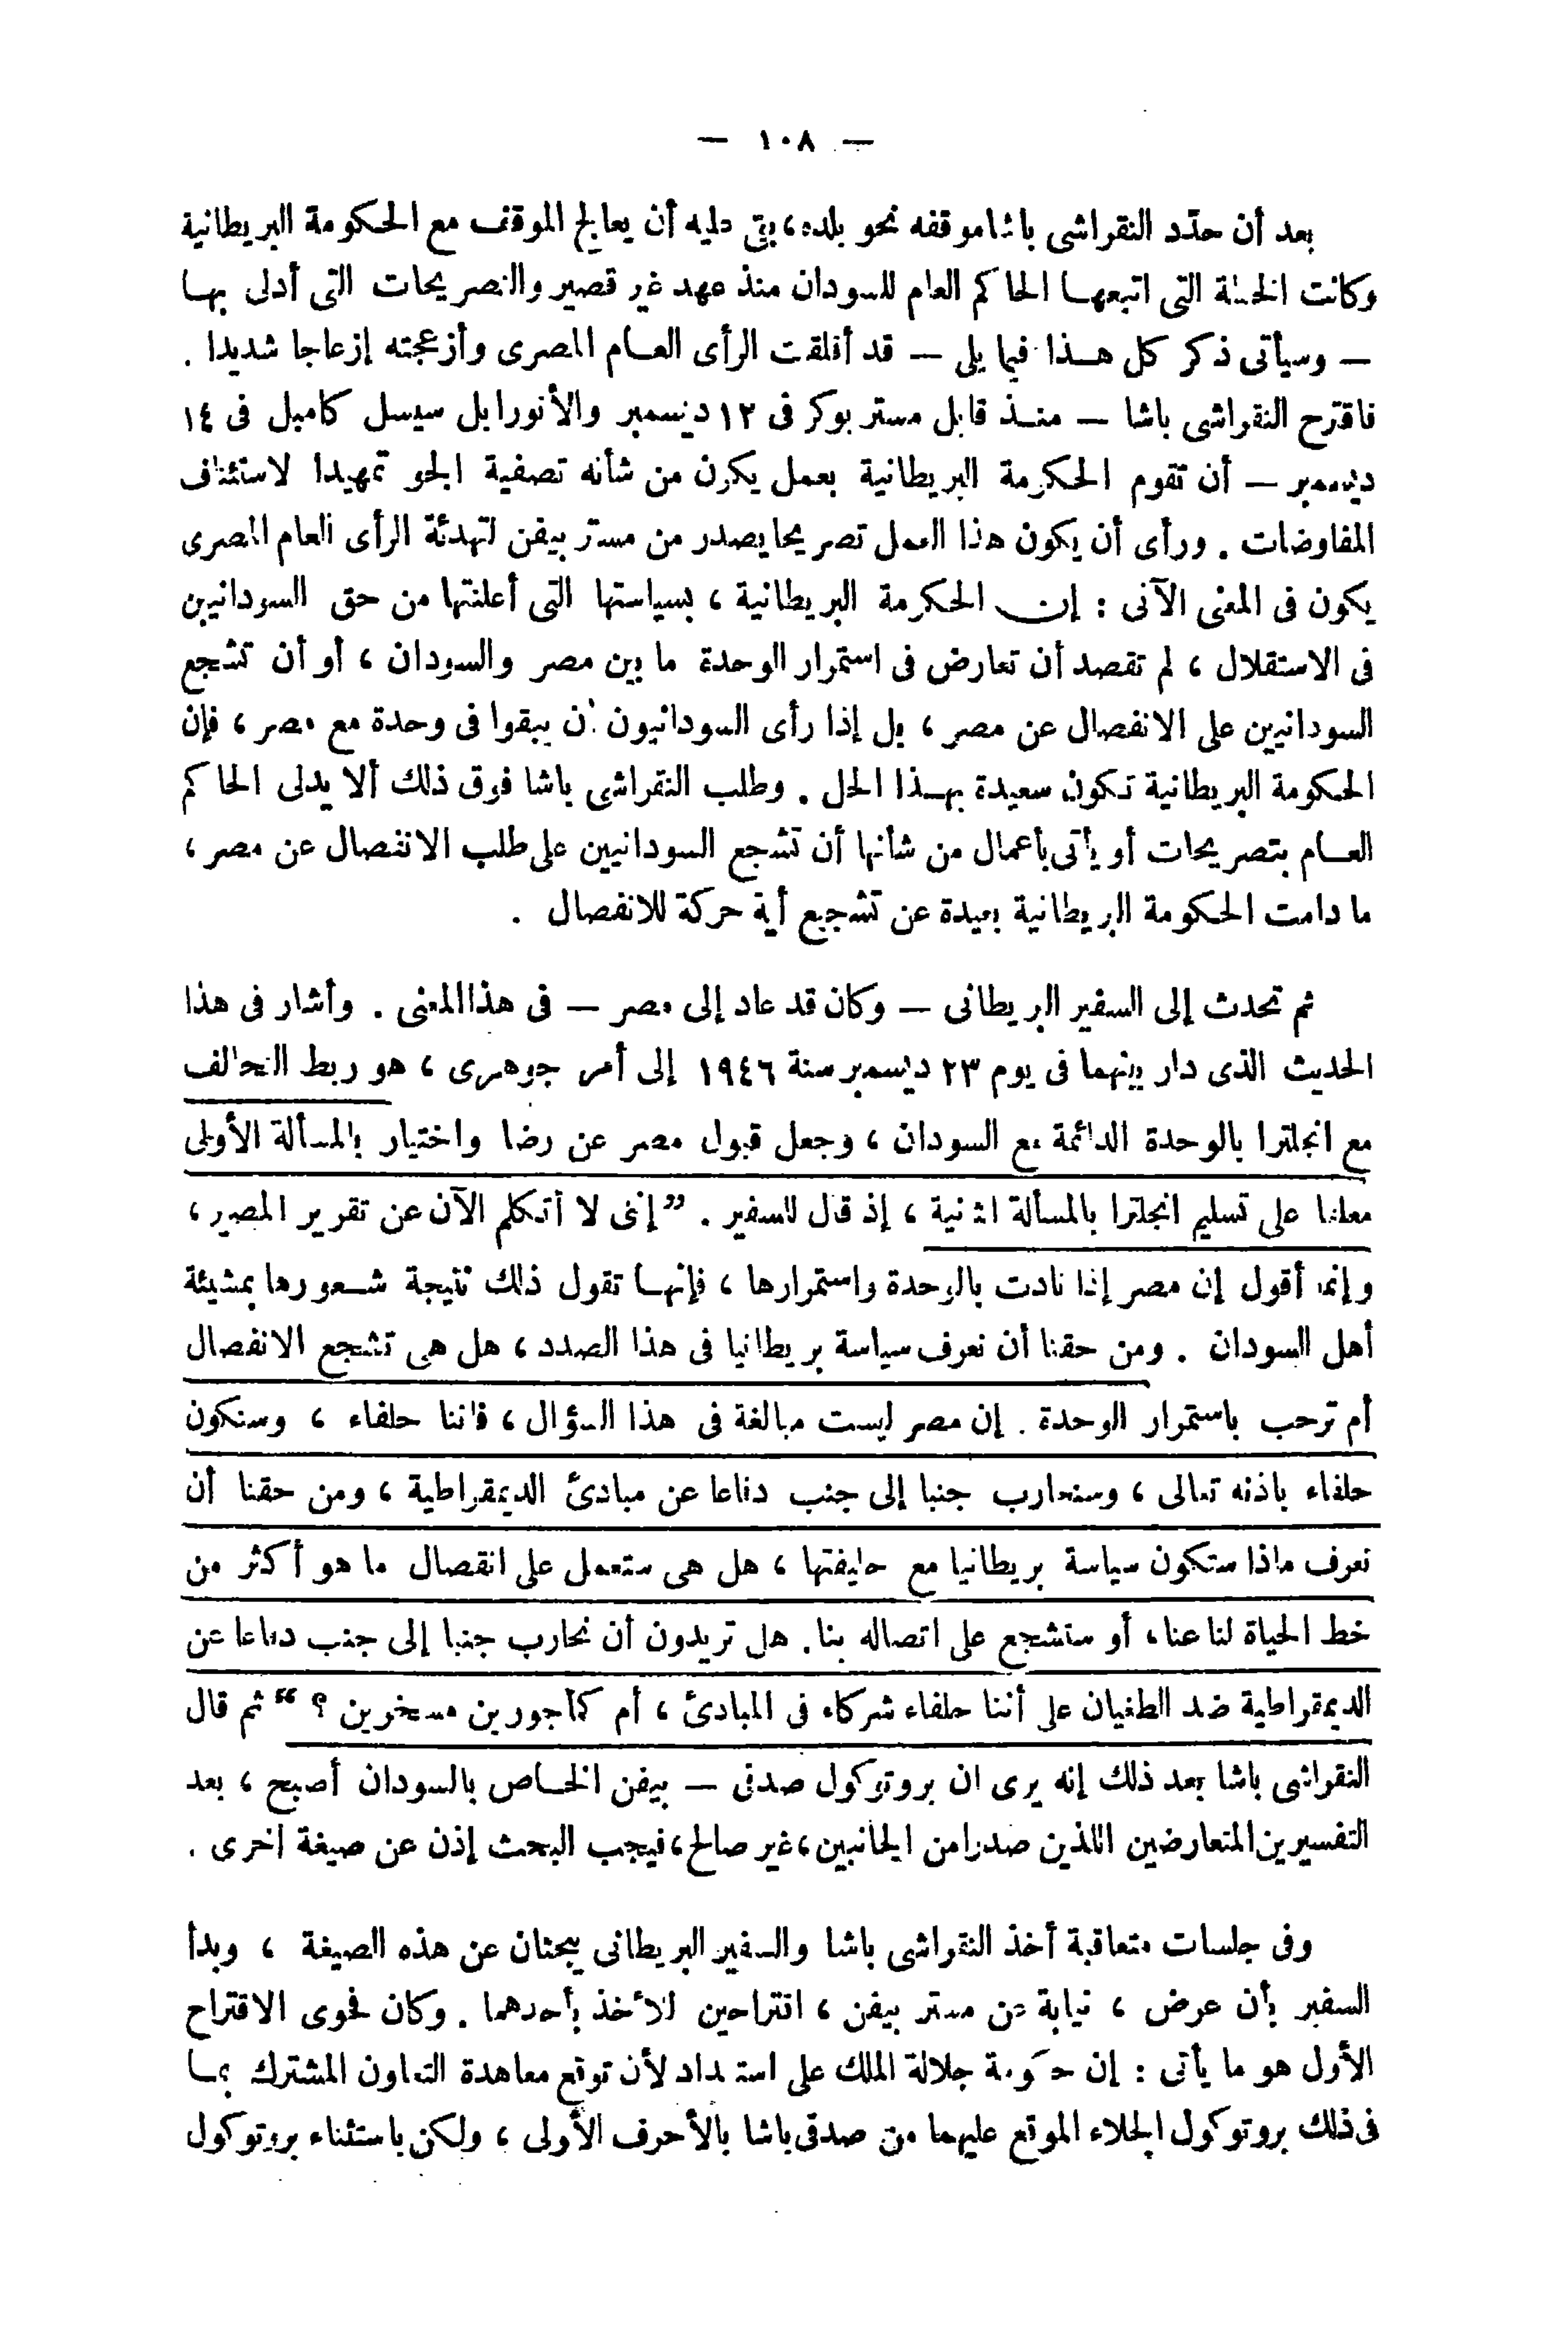 — ١٠٨ —
بعد أن حدّد النقراشى باشا موقفه نحو بلده، بقى عليه أن يعالج الموقف مع الحكومة البريطانية
وكانت الخطة التى اتبعهـا الحاكم العام للسودان منذ عهد غير قصير والتصريحات التى أدلى بهـا
— وسيأتى ذكر كل هـذا فيما يلى — قد أقلقت الرأى العـام المصرى وأزعجته إزعاجا شديدا .
فاقترح النقراشى باشا — منـذ قابل مستر بوكر فى ١٢ ديسمبر والأنورابل سيسل كامبل فى ١٤
ديسمبر — أن تقوم الحكومة البريطانية بعمل يكون من شأنه تصفية الجو تمهيدا لاستئناف
المفاوضات . ورأى أن يكون هذا العمل تصريحا يصدر من مستر بيفن لتهدئة الرأى العام المصرى
يكون فى المعنى الآتى : إن الحكومة البريطانية ، بسياستها التى أعلنتها من حق السودانيين
فى الاستقلال ، لم تقصد أن تعارض فى استمرار الوحدة ما بين مصر والسودان ، أو أن تشجع
السودانيين على الانفصال عن مصر ، بل إذا رأى السودانيون أن يبقوا فى وحدة مع مصر ، فإن
الحكومة البريطانية تكون سعيدة بهـذا الحل . وطلب النقراشى باشا فوق ذلك ألا يدلى الحاكم
العـام بتصريحات أو يأتى بأعمال من شأنها أن تشجع السودانيين على طلب الانفصال عن مصر ،
ما دامت الحكومة البريطانية بعيدة عن تشجيع أية حركة للانفصال .
ثم تحدث إلى السفير البريطانى — وكان قد عاد إلى مصر — فى هذا المعنى . وأشار فى هذا
الحديث الذى دار بينهما فى يوم ٢٣ ديسمبر سنة ١٩٤٦ إلى أمر جوهرى ، هو ربط التحالف
مع انجلترا بالوحدة الدائمة مع السودان ، وجعل قبول مصر عن رضا واختيار بالمسألة الأولى
معلقا على تسليم انجلترا بالمسألة الثانية ، إذ قال للسفير . ”إنى لا أتكلم الآن عن تقرير المصير ،
وإنما أقول إن مصر إذا نادت بالوحدة واستمرارها ، فإنهـا تقول ذلك نتيجة شـعورها بمشيئة
أهل السودان . ومن حقنا أن نعرف سياسة بريطانيا فى هذا الصدد ، هل هى تشجع الانفصال
أم ترحب باستمرار الوحدة . إن مصر ليست مبالغة فى هذا السؤال ، فاننا حلفاء ، وسنكون
حلفاء باذنه تعالى ، وسنحارب جنبا إلى جنب دفاعا عن مبادئ الديمقراطية ، ومن حقنا أن
نعرف ماذا ستكون سياسة بريطانيا مع حليفتها ، هل هى ستعمل على انفصال ما هو أكثر من
خط الحياة لنا عنا، أو ستشجع على اتصاله بنا. هل تريدون أن نحارب جنبا إلى جنب دفاعا عن
الديمقراطية ضد الطغيان على أننا حلفاء شركاء فى المبادئ ، أم كمأجورين مسخرين ؟“ ثم قال
النقراشى باشا بعد ذلك إنه يرى ان بروتوكول صدقى — بيفن الخـاص بالسودان أصبح ، بعد
التفسيرين المتعارضين اللذين صدرا من الجانبين ، غير صالح ، فيجب البحث إذن عن صيغة أخرى .
وفى جلسات متعاقبة أخذ النقراشى باشا والسفير البريطانى يبحثان عن هذه الصيغة ، وبدأ
السفير بأن عرض ، نيابة عن مستر بيفن ، اقتراحين للأخذ بأحدهما . وكان فحوى الاقتراح
الأول هو ما يأتى : إن حكومة جلالة الملك على استعداد لأن توقع معاهدة التعاون المشترك بمـا
فى ذلك بروتوكول الجلاء الموقع عليهما من صدقى باشا بالأحرف الأولى ، ولكن باستثناء بروتوكول